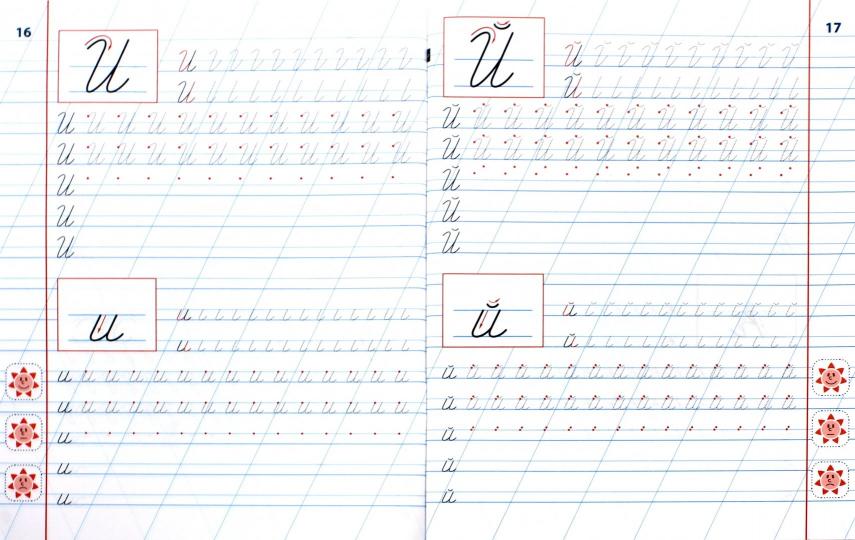 16
И
И
И
И И И И И И И И И И И И
И И И И И И И И И И И И
И
И
И
и
и
и
и и и и и и и и и и и и и и и
и и и и и и и и и и и и и и и
и
и
и
17
Й
Й
Й
Й Й Й Й Й Й Й Й Й Й Й Й
Й Й Й Й Й Й Й Й Й Й Й Й
Й
Й
Й
й
й
й
й й й й й й й й й й й й й й й
й й й й й й й й й й й й й й й
й
й
й